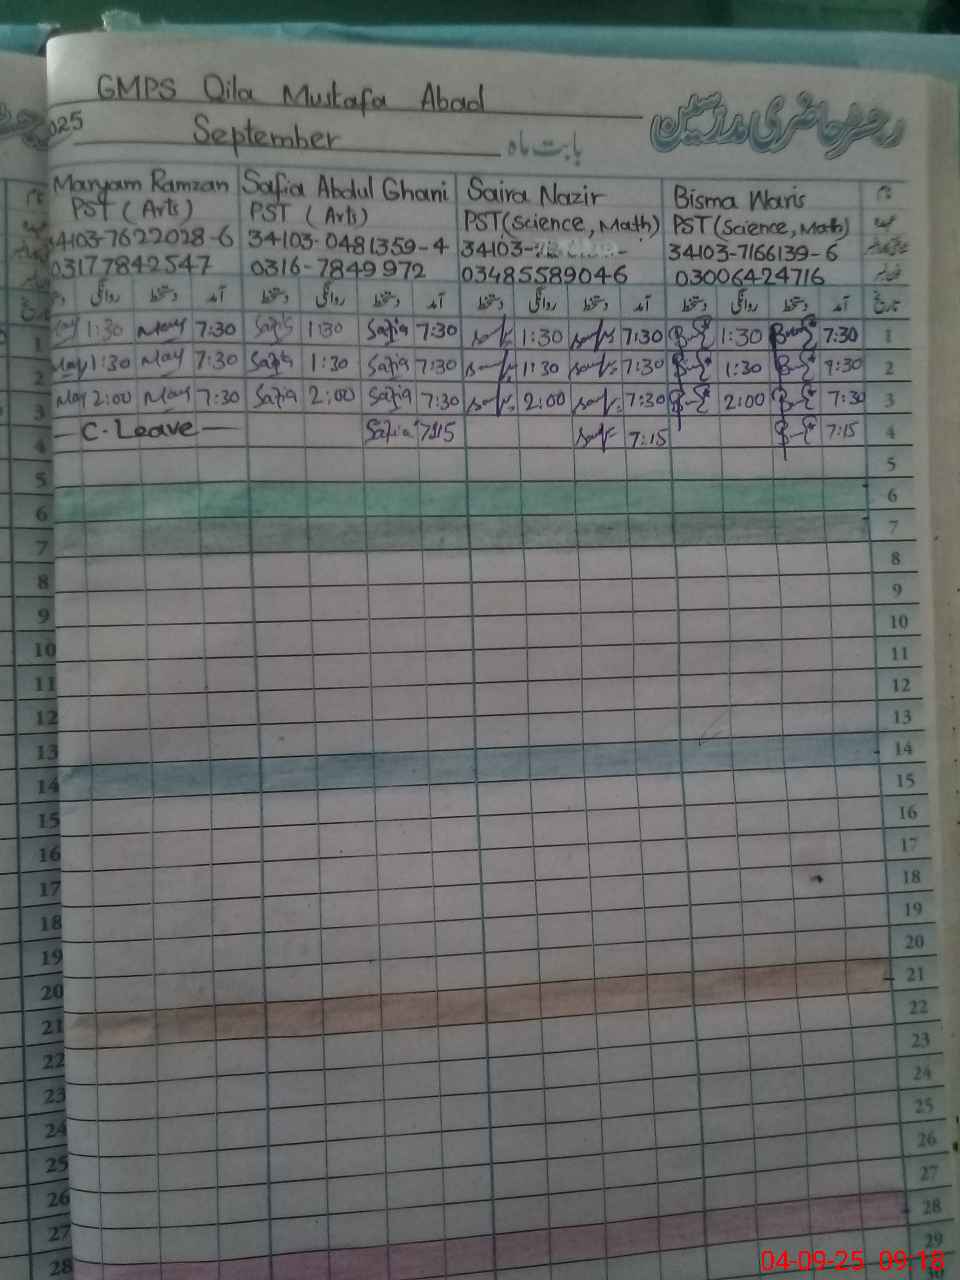 GMPS Qila Mustafa Abad
رجسٹر حاضری مدرسین
2025
September
بابت ماہ
Maryam Ramzan Safia Abdul Ghani Saira Nazir Bisma Waris نام
PST (Arts) PST (Arts) PST (Science, Math) PST (Science, Math)
34103-7622028-6 34103-0481359-4 34103- 34103-7166139-6
03177842547 0316-7849972 03485589046 03006424716
دستخط روانگی دستخط آمد دستخط روانگی دستخط آمد دستخط روانگی دستخط آمد دستخط روانگی دستخط آمد تاریخ
1 May 1:30 May 7:30 Safia 1:30 Safia 7:30 1:30 7:30 1:30 7:30 1
2 May 1:30 May 7:30 Safia 1:30 Safia 7:30 1:30 7:30 1:30 7:30 2
3 May 2:00 May 7:30 Safia 2:00 Safia 7:30 2:00 7:30 2:00 7:30 3
4 - C. Leave - Safia 7:15 7:15 7:15 4
5 5
6 6
7 7
8 8
9 9
10 10
11 11
12 12
13 13
14 14
15 15
16 16
17 17
18 18
19 19
20 20
21 21
22 22
23 23
24 24
25 25
26 26
27 27
28 28
29
04-09-25 09:18